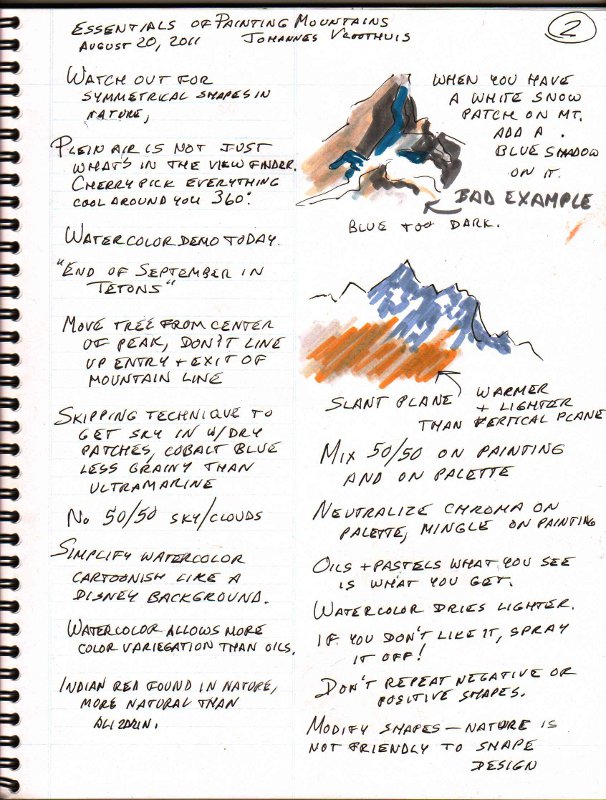 ESSENTIALS OF PAINTING MOUNTAINS
AUGUST 20, 2011 JOHANNES VLOOTHUIS
2
WATCH OUT FOR
SYMMETRICAL SHAPES IN
NATURE,
PLEIN AIR IS NOT JUST
WHAT'S IN THE VIEW FINDER.
CHERRY PICK EVERYTHING
COOL AROUND YOU 360°.
WATERCOLOR DEMO TODAY.
"END OF SEPTEMBER IN
TETONS"
MOVE TREE FROM CENTER
OF PEAK, DON'T LINE
UP ENTRY + EXIT OF
MOUNTAIN LINE
SKIPPING TECHNIQUE TO
GET SKY IN W/DRY
PATCHES, COBALT BLUE
LESS GRAINY THAN
ULTRAMARINE
NO 50/50 SKY/CLOUDS
SIMPLIFY WATERCOLOR
CARTOONISH LIKE A
DISNEY BACKGROUND.
WATERCOLOR ALLOWS MORE
COLOR VARIEGATION THAN OILS.
INDIAN RED FOUND IN NATURE,
MORE NATURAL THAN
ALIZARIN.
WHEN YOU HAVE
A WHITE SNOW
PATCH ON MT.
ADD A
BLUE SHADOW
ON IT.
BAD EXAMPLE
BLUE TOO DARK.
SLANT PLANE WARMER
+ LIGHTER
THAN VERTICAL PLANE
MIX 50/50 ON PAINTING
AND ON PALETTE
NEUTRALIZE CHROMA ON
PALETTE, MINGLE ON PAINTING
OILS + PASTELS WHAT YOU SEE
IS WHAT YOU GET.
WATERCOLOR DRIES LIGHTER.
IF YOU DON'T LIKE IT, SPRAY
IT OFF!
DON'T REPEAT NEGATIVE OR
POSITIVE SHAPES.
MODIFY SHAPES — NATURE IS
NOT FRIENDLY TO SHAPE
DESIGN